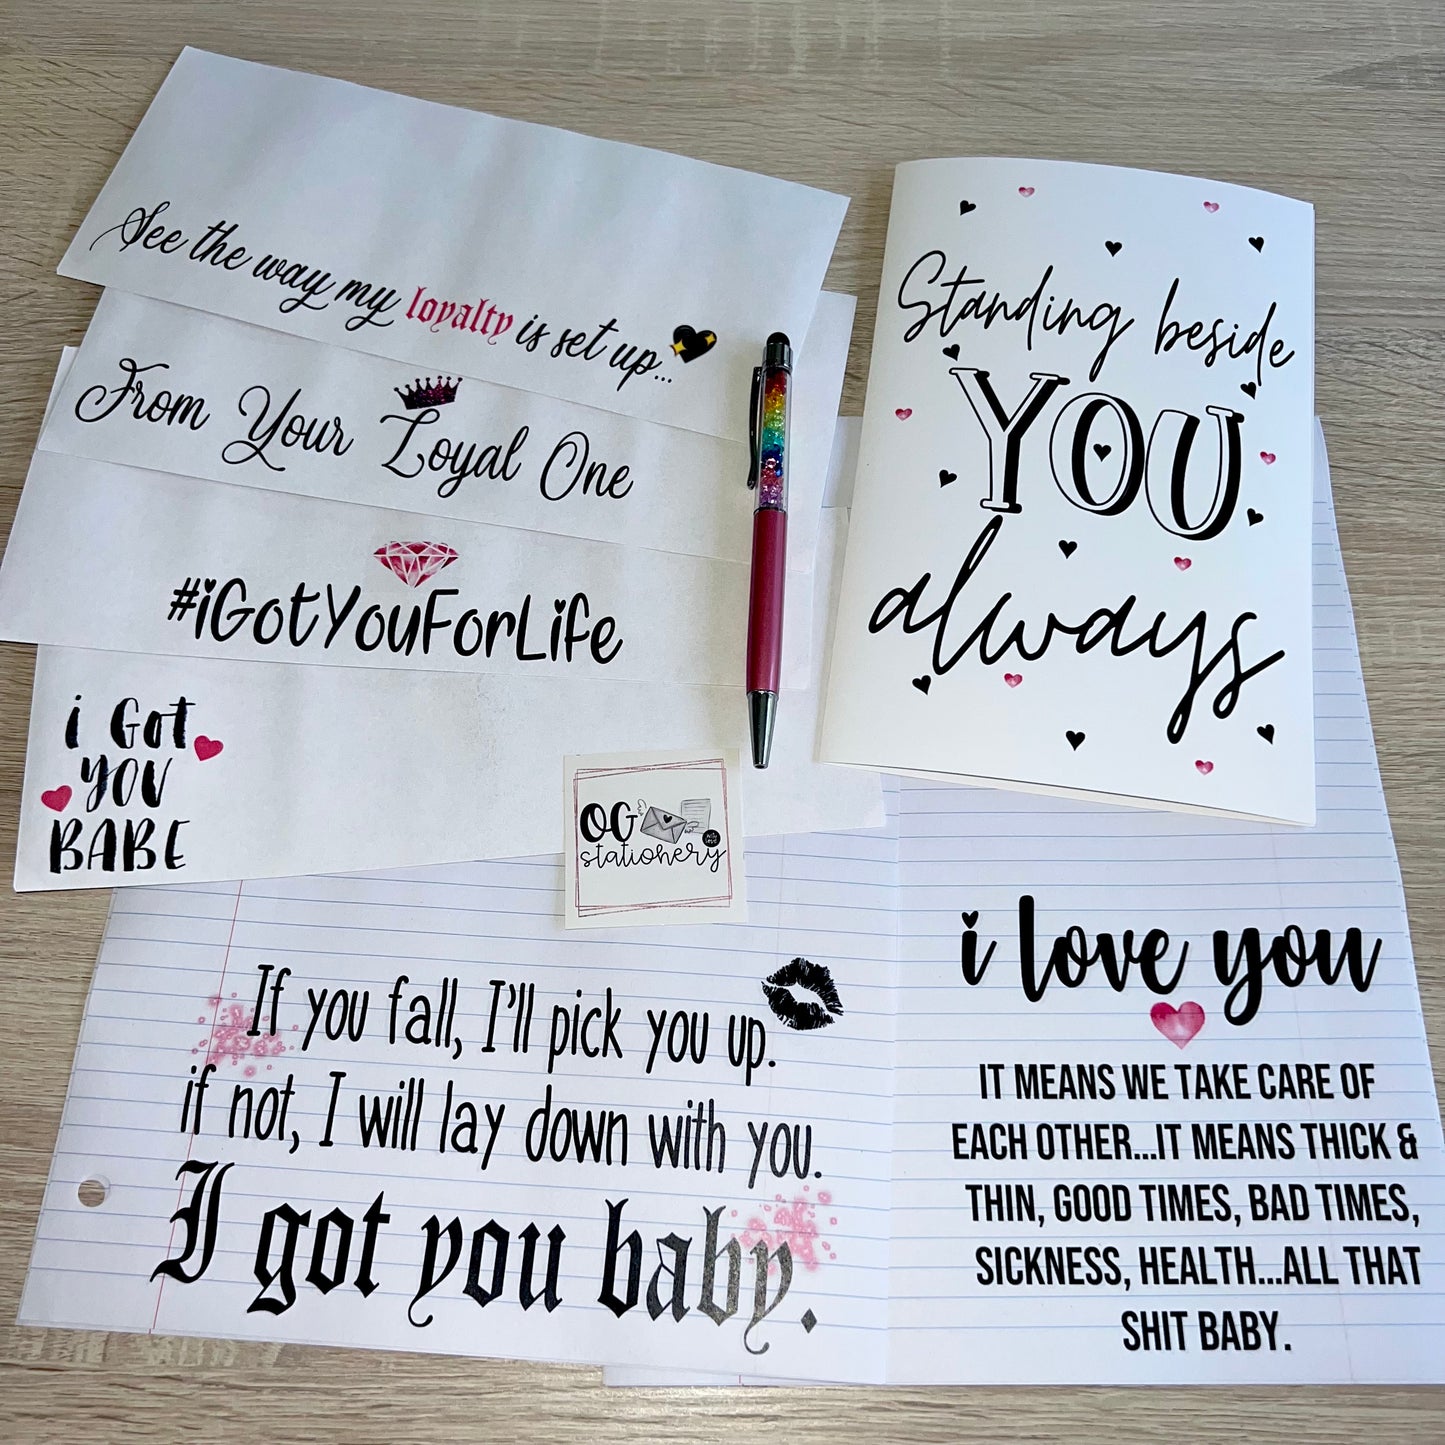 See the way my loyalty is set up...
From Your Loyal One
#iGotYouForLife
i Got
YOU
BABE
Standing beside
YOU
always
OG
stationery
If you fall, I'll pick you up.
if not, I will lay down with you.
I got you baby.
i love you
IT MEANS WE TAKE CARE OF
EACH OTHER...IT MEANS THICK &
THIN, GOOD TIMES, BAD TIMES,
SICKNESS, HEALTH...ALL THAT
SHIT BABY.